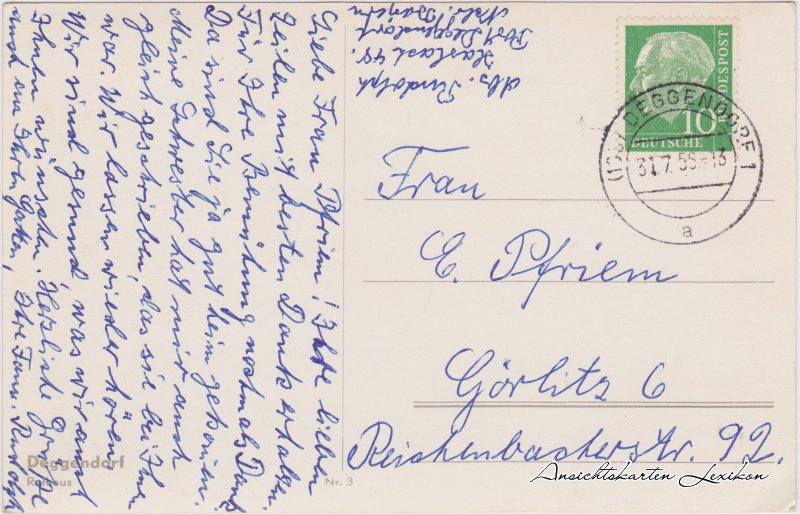 Liebe Frau Pfriem! Ihre lieben
Zeilen mit besten Dank erhalten.
Für Ihre Bemühung nochmals Dank
Da sind Sie ja gut heim gekommen.
Meine Schwester hat mir auch
gleich geschrieben, das sie bei Ihnen
war. Wir lassen wieder hören
Wir sind gesund was wir auch
Ihnen wünschen. Herzliche Grüße
auch an Ihren Gatten, Ihre Fam. Rudolph
Abs. Rudolph
Haslach 48.
Post Deggendorf
Ndr. Bayern
DEUTSCHE BUNDESPOST
10
DEGGENDORF 1
31.7.56.-13
a
Frau
E. Pfriem
Görlitz 6
Reichenbacherstr. 92.
Deggendorf
Rathaus
Nr. 3
Ansichtskarten Lexikon